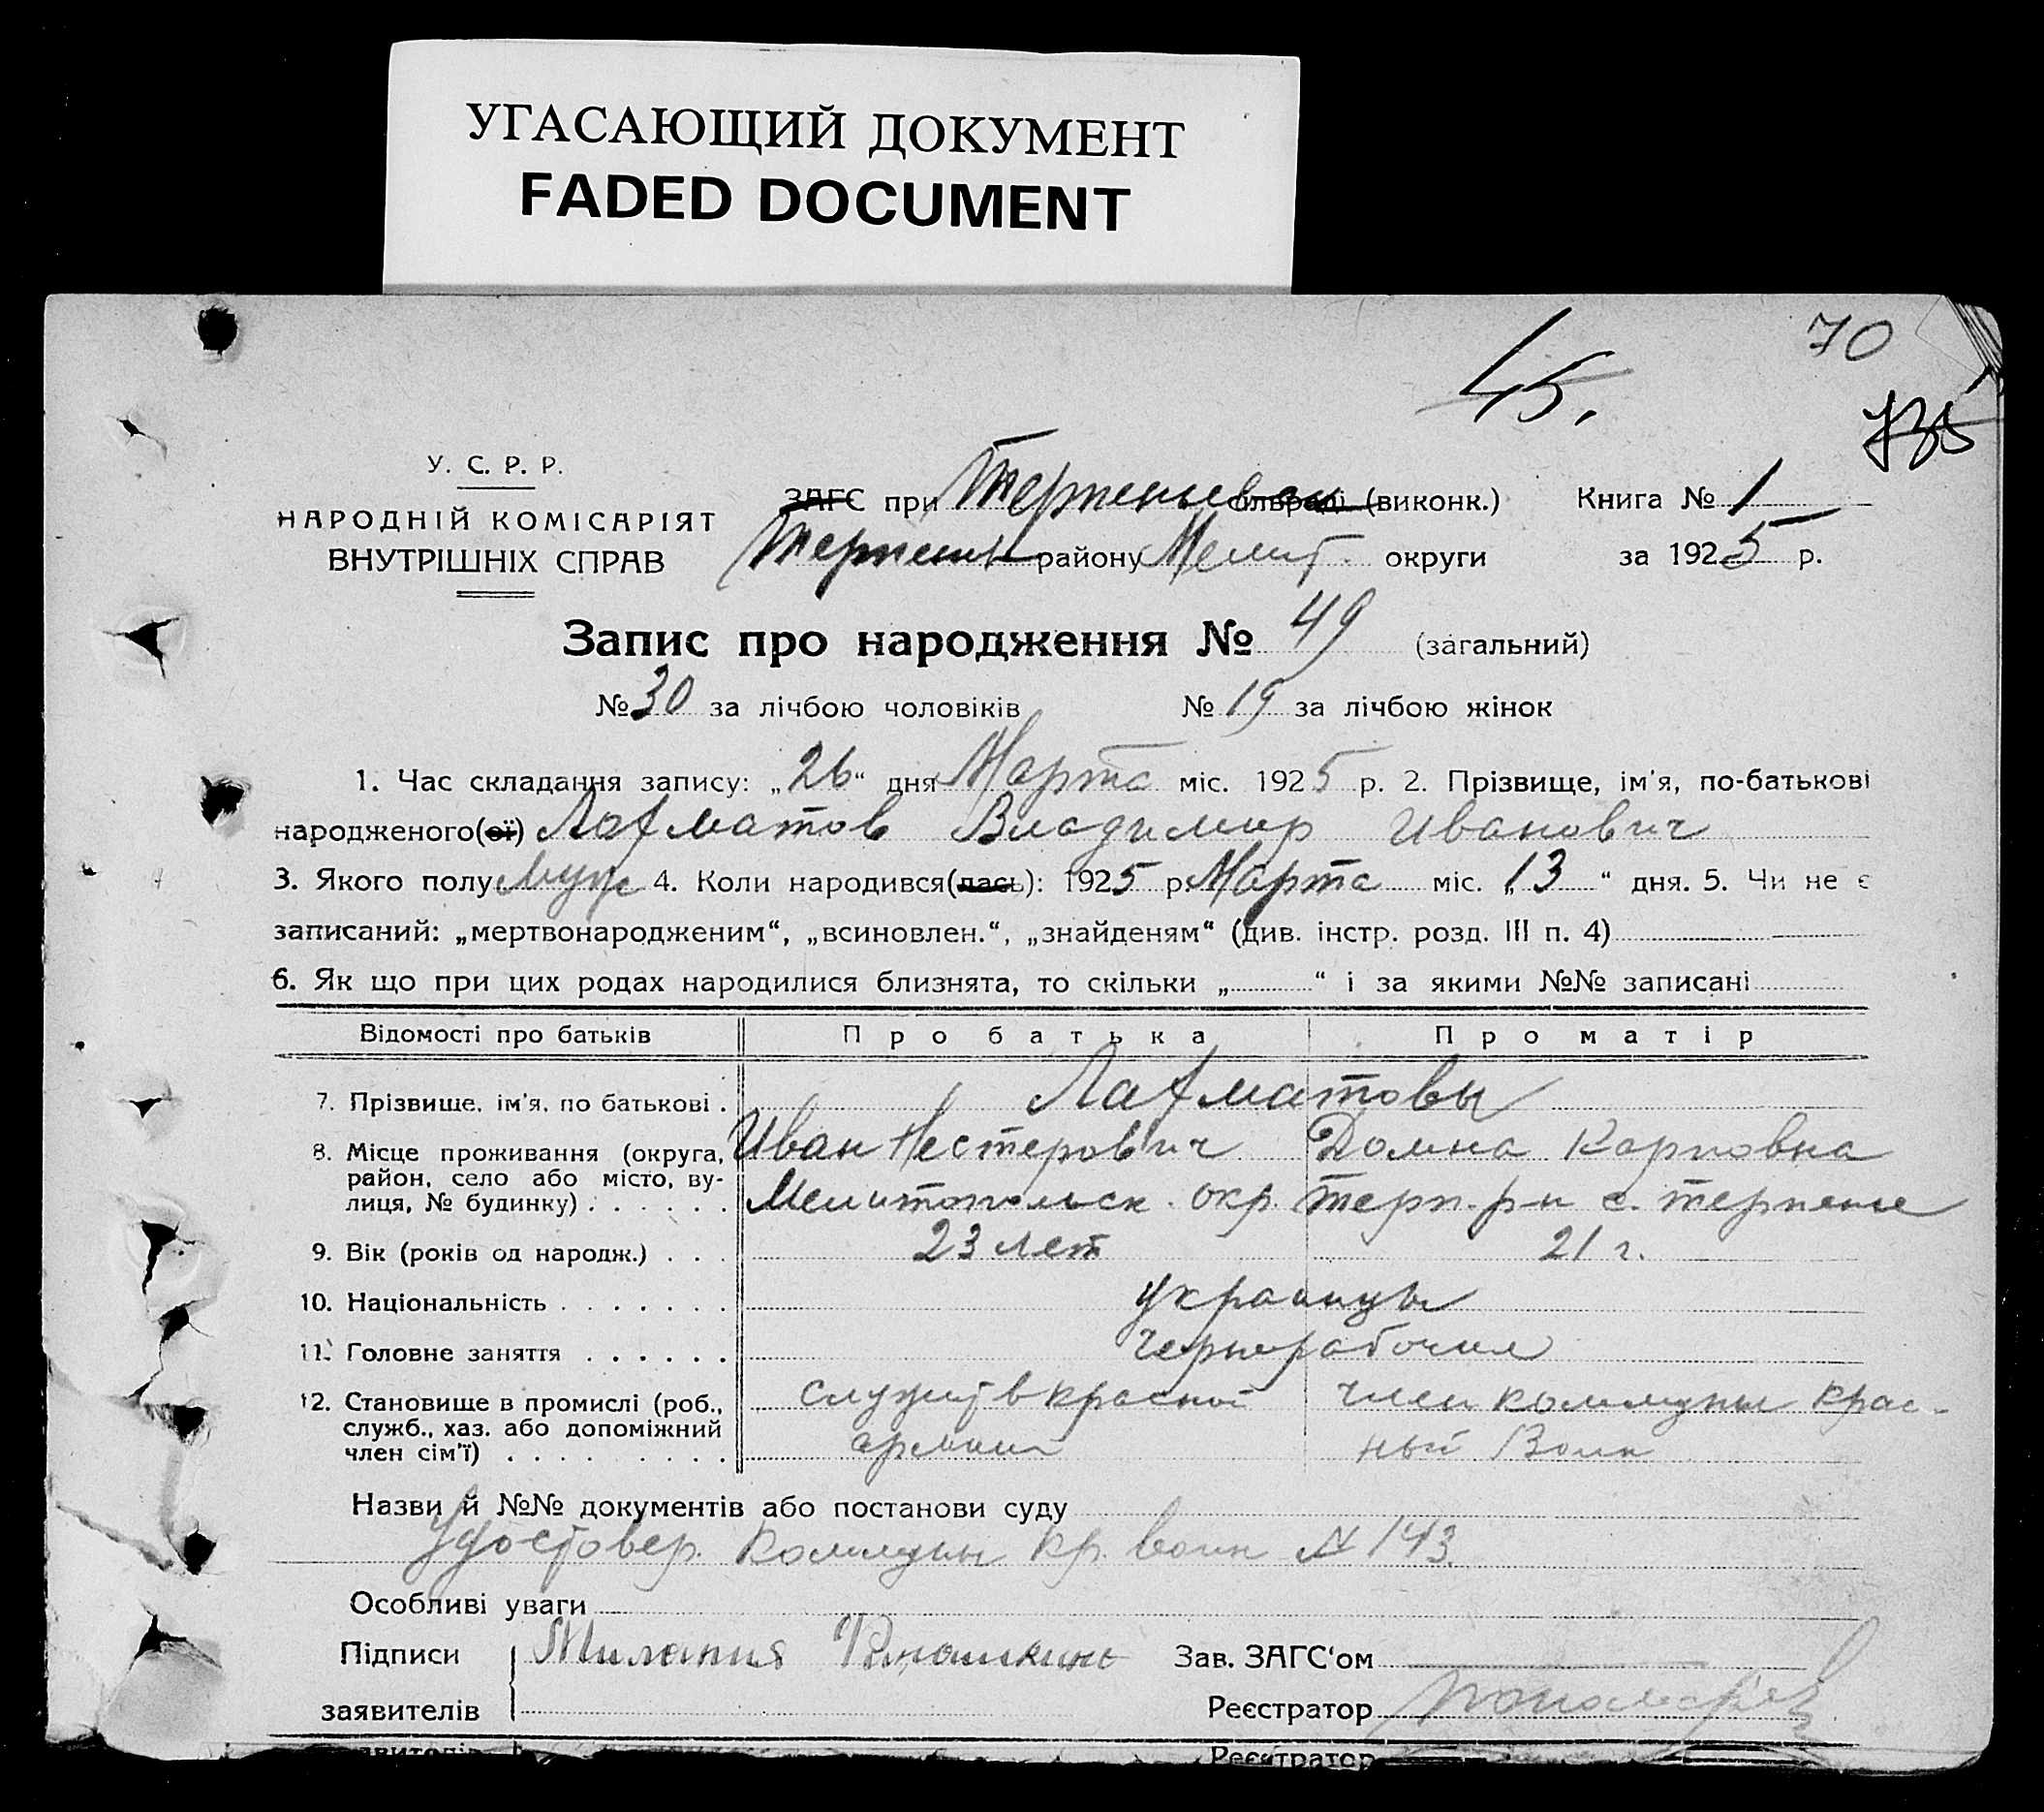 УГАСАЮЩИЙ ДОКУМЕНТ
FADED DOCUMENT
70
45.
735
У. С. Р. Р.
НАРОДНІЙ КОМІСАРІЯТ
ВНУТРІШНІХ СПРАВ
ЗАГС при Терпеньевом сільраді (виконк.) Книга № 1
Терпень району Мелит. округи за 1925 р.
Запис про народження № 49 (загальний)
№ 30 за лічбою чоловіків № 19 за лічбою жінок
1. Час складання запису: „26“ дня Марта міс. 1925 р. 2. Прізвище, ім'я, по-батькові
народженого(ої) Лахматов Владимир Иванович
3. Якого полу муж 4. Коли народився(лась): 1925 р. Марта міс. „13“ дня. 5. Чи не є
записаний: „мертвонародженим“, „всиновлен.“, „знайденям“ (див. інстр. розд. III п. 4)
6. Як що при цих родах народилися близнята, то скільки „ “ і за якими №№ записані
Відомості про батьків Про батька Про матір
7. Прізвище, ім'я, по батькові . Лахматовы
Иван Нестерович Домна Карповна
8. Місце проживання (округа,
район, село або місто, ву-
лиця, № будинку) . . . . . . Мелитопольск. окр. Терп. р-н с. терпенье
9. Вік (років од народж.) . . . 23 лет 21 г.
10. Національність . . . . . . . украинцы
11. Головне заняття . . . . . . чернорабочие
12. Становище в промислі (роб.,
служб., хаз. або допоміжний
член сім'ї) . . . . . . . . .
служит в красной член коммуны крас-
армии ный Воин
Назви й №№ документів або постанови суду
Удостовер. коммуны кр. воин № 143.
Особливі уваги
Підписи Зав. ЗАГС'ом
заявителів Реєстратор
Реєстратор